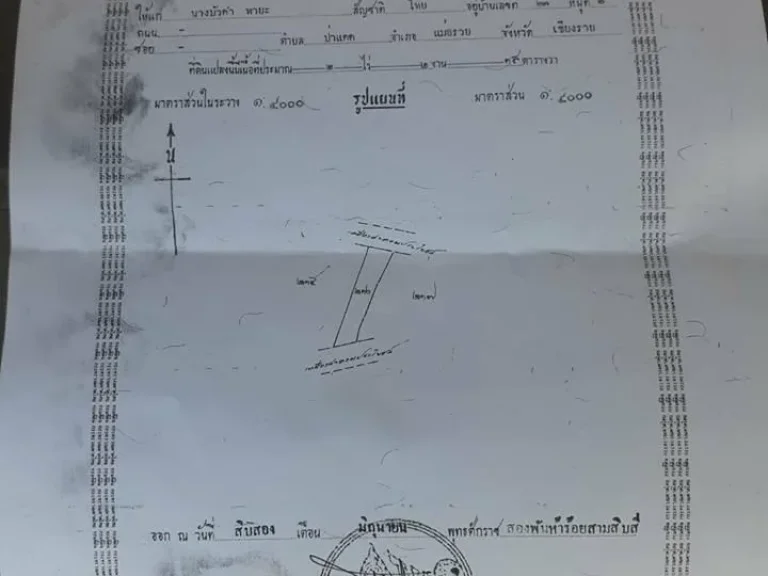 ให้แก่ นางบัวคำ หายะ สัญชาติ ไทย อยู่บ้านเลขที่ ๒๓ หมู่ที่
ถนน - ตำบล ป่าแดด อำเภอ แม่สรวย จังหวัด เชียงราย
ซอย -
ที่ดินแปลงนี้มีเนื้อที่ประมาณ ๒ ไร่ ๒ งาน ๑๕ ตารางวา
มาตราส่วนในระวาง ๑:๔๐๐๐ รูปแผนที่ มาตราส่วน ๑:๔๐๐๐
น
ทางสาธารณประโยชน์
๒๓๕ ๒๓๖ ๒๓๗
ทางสาธารณประโยชน์
ออก ณ วันที่ สิบสอง เดือน มิถุนายน พุทธศักราช สองพันห้าร้อยสามสิบสี่